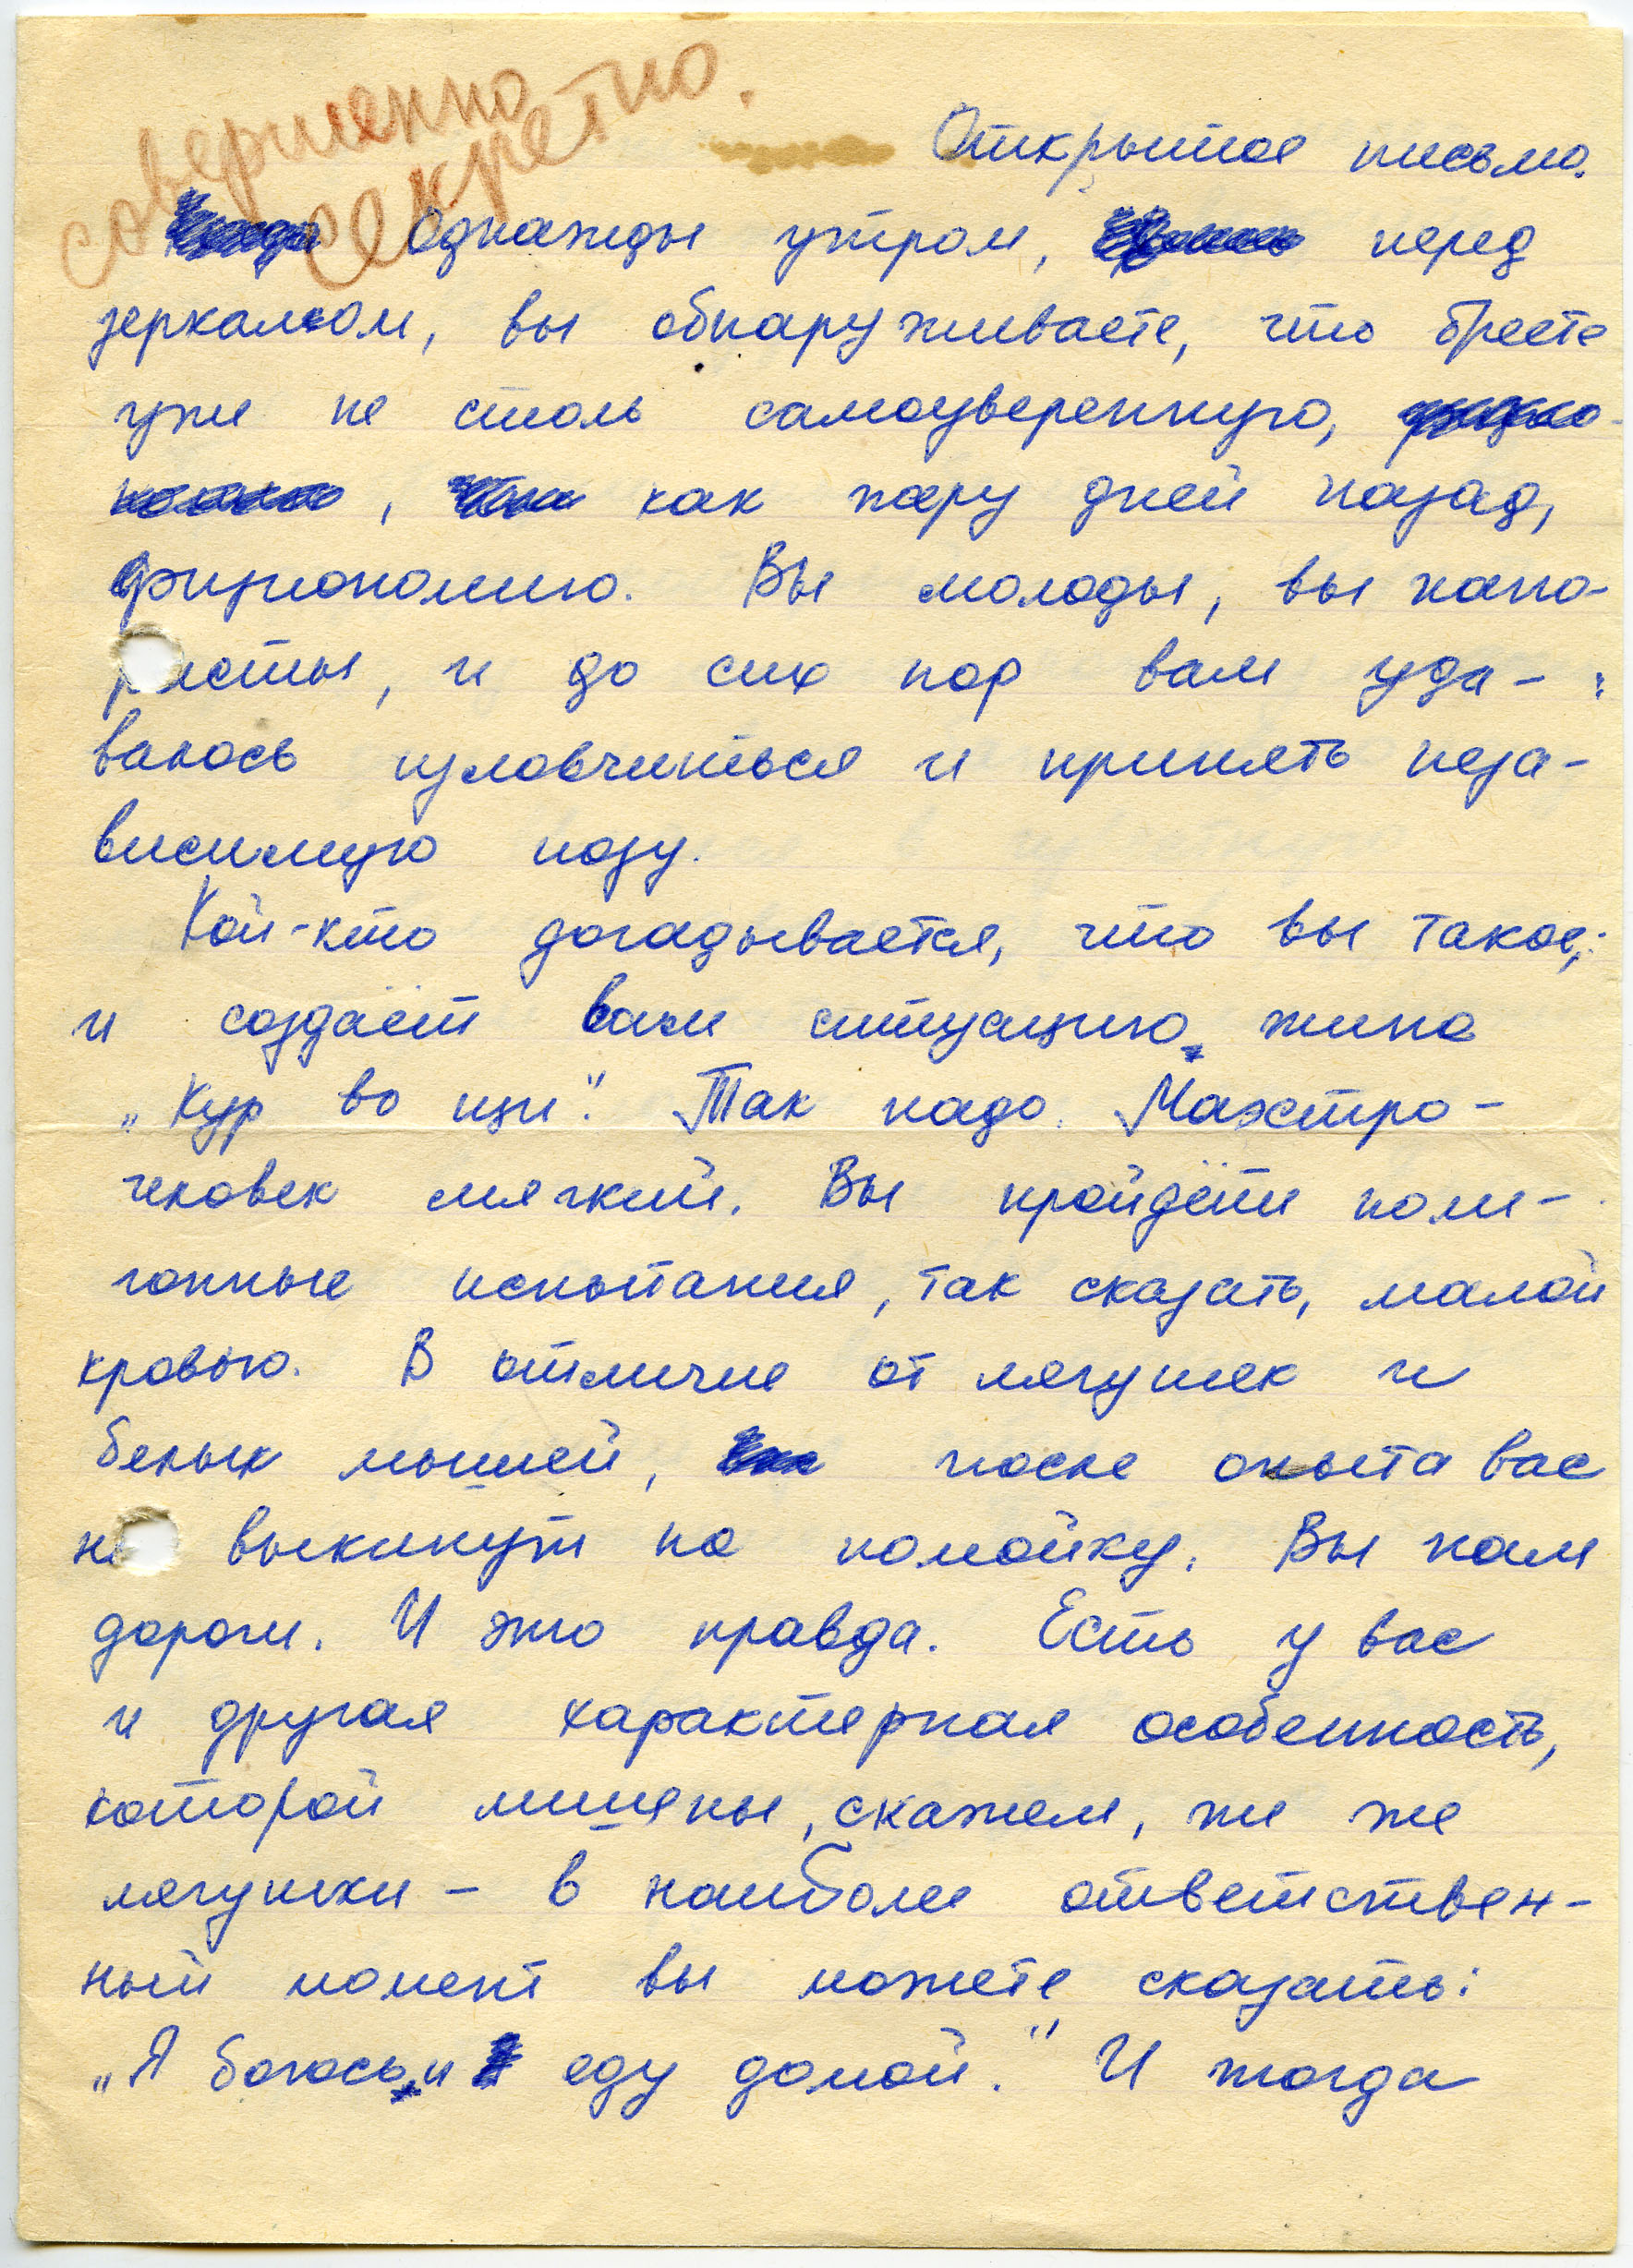 совершенно
секретно.
Открытое письмо.
Однажды утром, перед
зеркалом, вы обнаруживаете, что бреете
уже не столь самоуверенную,
, как пару дней назад,
физиономию. Вы молоды, вы напо-
ристы, и до сих пор вам уда-
валось изловчиться и принять неза-
висимую позу.
Кой-кто догадывается, что вы такое,
и создаёт вам ситуацию типа
„Кур во щи". Так надо. Маэстро -
человек мягкий. Вы пройдёте поли-
гонные испытания, так сказать, малой
кровью. В отличие от лягушек и
белых мышей, после опыта вас
не выкинут на помойку. Вы нам
дороги. И это правда. Есть у вас
и другая характерная особенность,
которой лишены, скажем, те же
лягушки – в наиболее ответствен-
ный момент вы можете сказать:
„Я боюсь и еду домой." И тогда